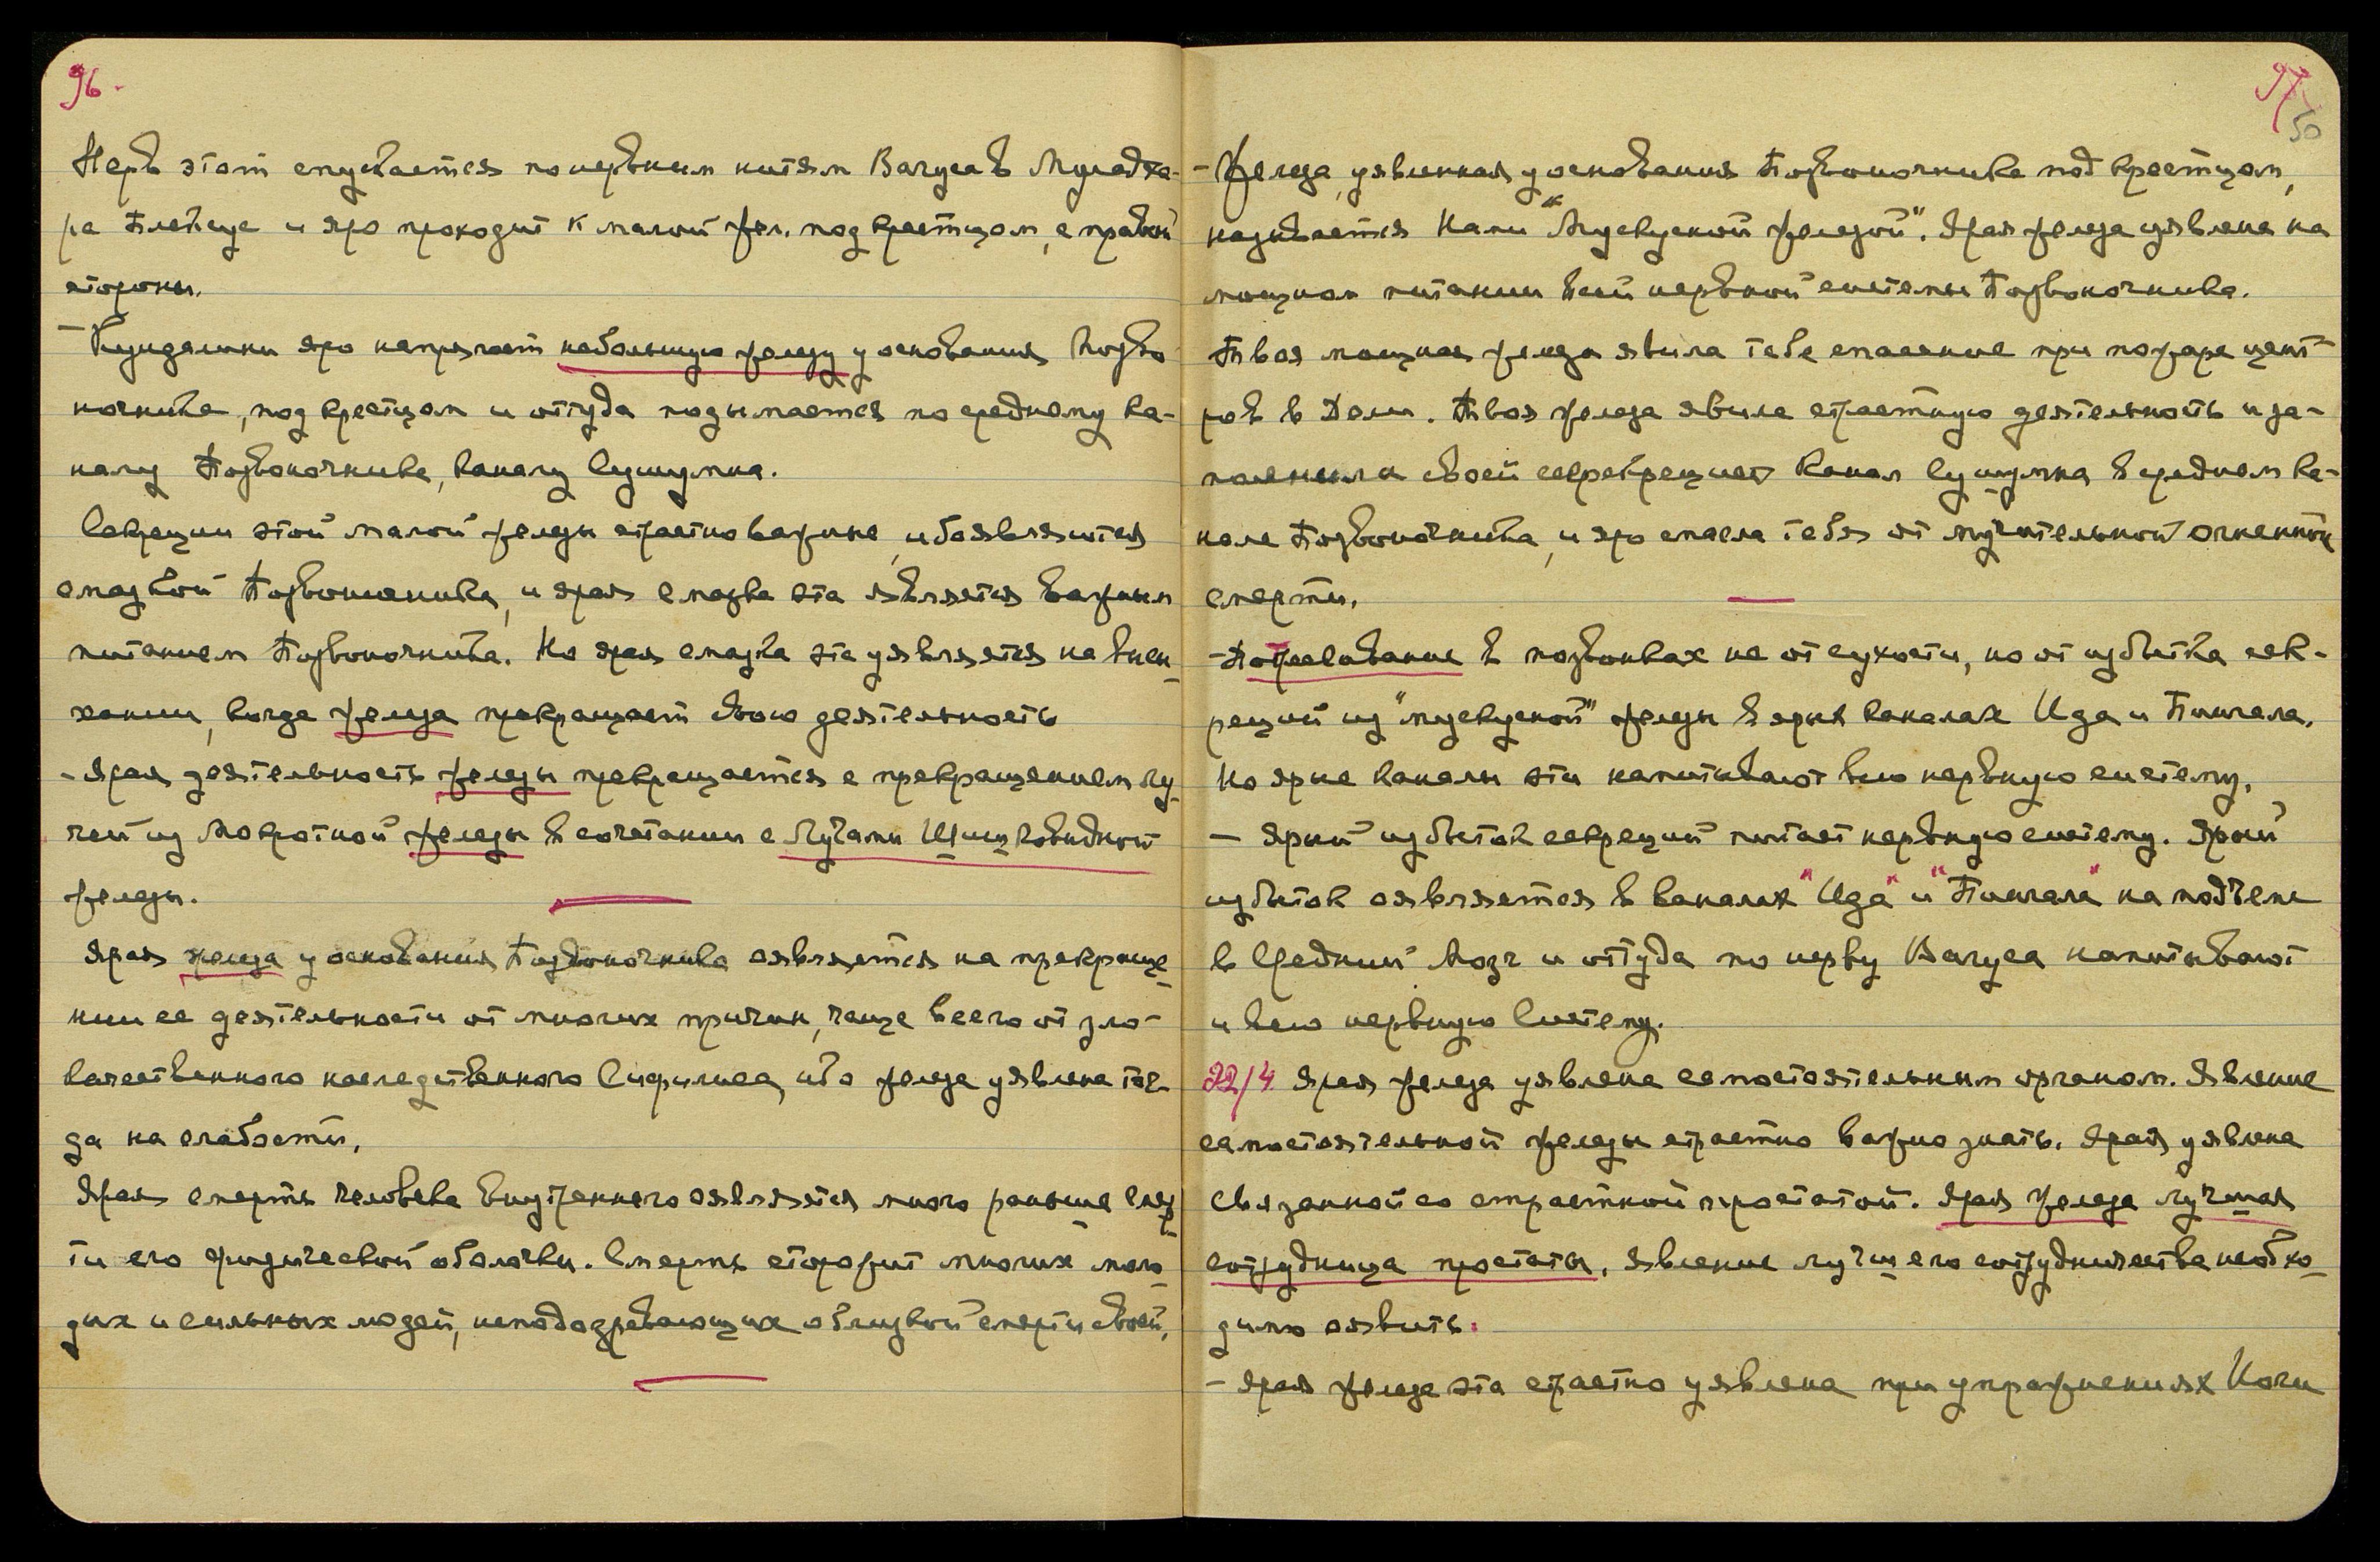 96.
Нерв этот спускается по нервным нитям Вагуса в Муладха-
ра Плексус и яро проходит к малой жел. под крестцом, с правой
стороны.
– Кундалини яро напрягает небольшую железу у основания Позво
ночника, под крестцом и оттуда подымается по среднему ка-
налу Позвоночника, каналу Сушумна.
Секреции этой малой железы страстно важные, ибо являются
смазкой Позвоночника, и ярая смазка эта является важным
питанием Позвоночника. Но ярая смазка эта уявляется на
, когда железа прекращает свою деятельность
– Ярая деятельность железы прекращается с прекращением Лу-
чей из Мокротной железы в сочетании с Лучами Шишковидной
железы.
Ярая железа у основания Позвоночника оявляется на прекраще-
нии ее деятельности от многих причин, чаще всего от зло-
качественного наследственного Сифилиса, ибо железа уявлена тог-
да на слабости.
Ярая смерть человека внутреннего оявляется много раньше смер-
ти его физической оболочки. Смерть сторожит многих моло-
дых и сильных людей, неподозревающих о близкой смерти своей.
97
50
– Железа, уявленная у основания Позвоночника под крестцом,
называется Нами "Мускусной железой". Ярая железа уявлена на
мощном питании всей нервной системы Позвоночника.
Твоя мощная железа явила тебе спасение при пожаре цент-
ров в Дели. Твоя железа явила страстную деятельность и за-
полнила своей секрекрецией Канал Сушумна в среднем ка-
нале Позвоночника, и яро спасла тебя от мучительной огненной
смерти.
– Потрескивание в позвонках не от сухости, но от избытка сек-
реций из "мускусной" железы в ярых каналах Ида и Пингала.
Но ярые каналы эти напитывают всю нервную систему.
– Ярый избыток секреций питает нервную систему. Ярый
избыток оявляется в каналах "Ида" и "Пингала" на подъеме
в Средний Мозг и оттуда по нерву Вагуса напитывают
и всю нервную Систему.
22/4 Ярая железа уявлена самостоятельным органом. Явление
самостоятельной железы страстно важно знать. Ярая уявлена
связанной со страстной простатой. Ярая железа лучшая
сотрудница простаты. Явление лучшего сотрудничества необхо-
димо оявить.
– Ярая железа эта страстно уявлена при упражнениях Йоги